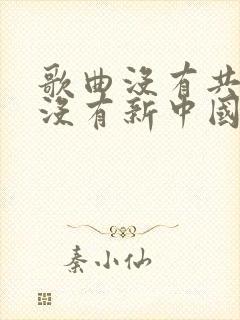 歌曲沒有共
沒有新中國
秦小仙